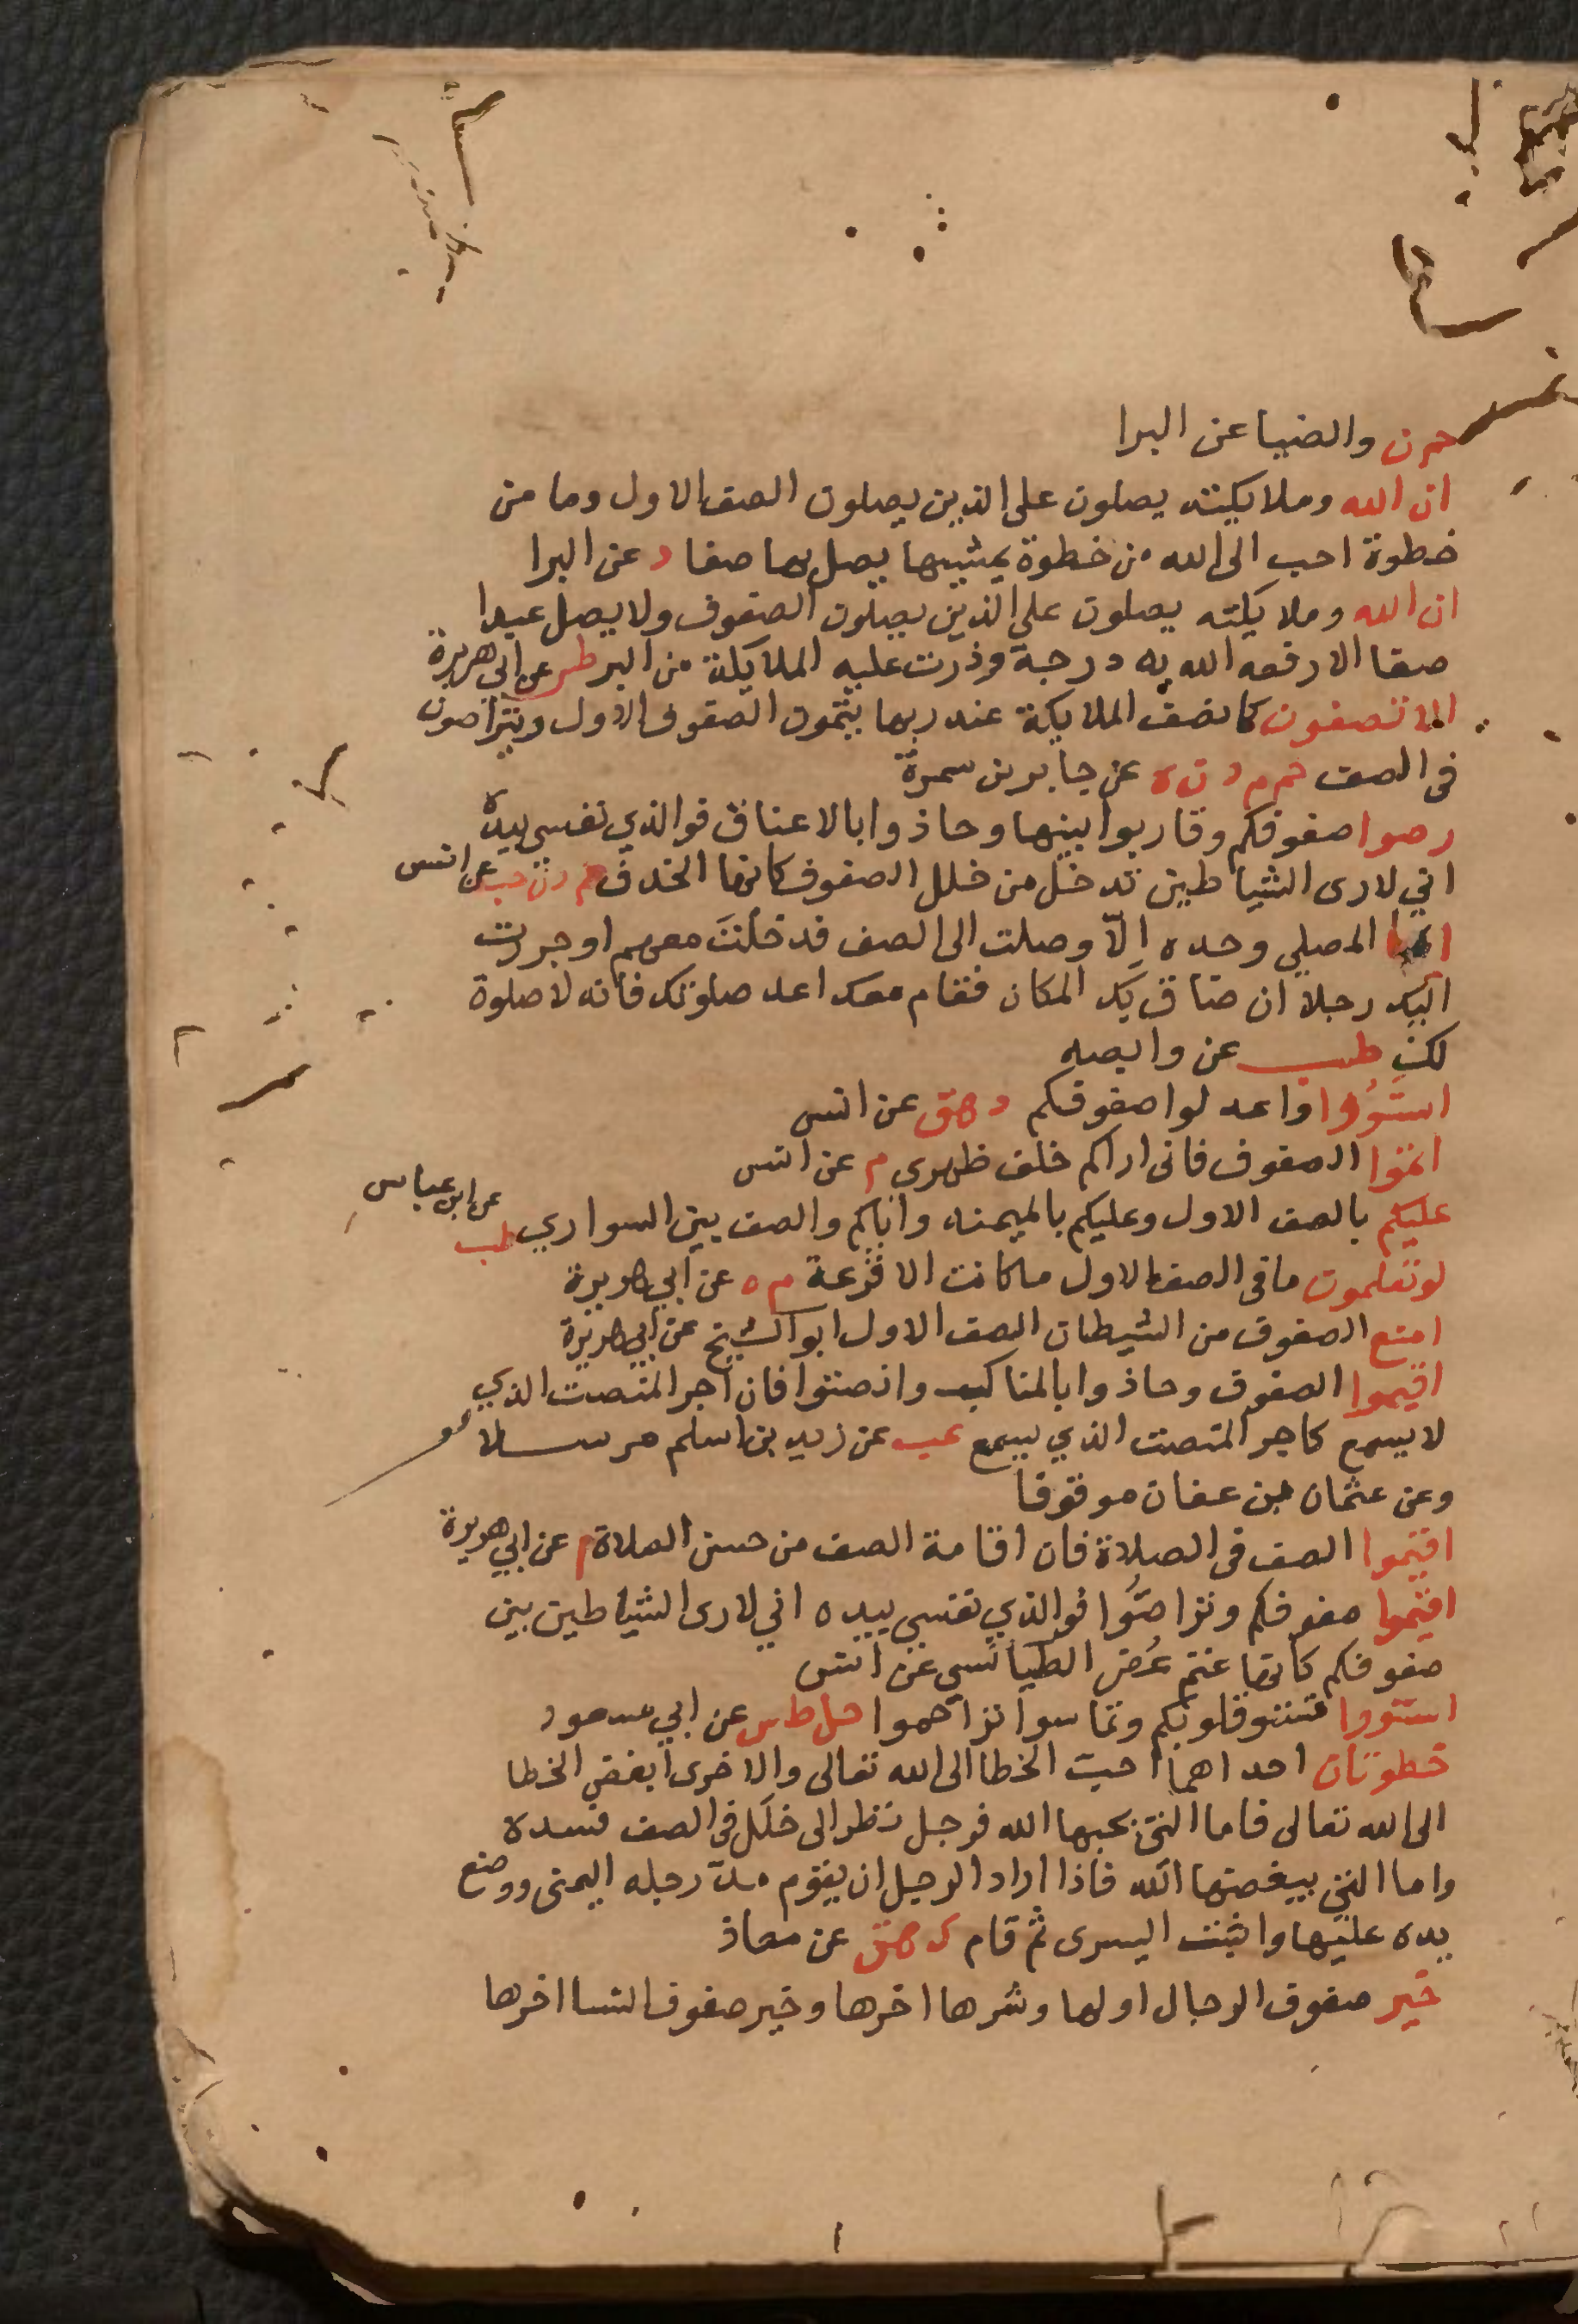 حم ن والضيا عن البرا
ان الله وملايكته يصلون على الذين يصلون الصف الاول وما من
خطوة احب الى الله من خطوة يمشيها يصل بها صفا د عن البرا
ان الله وملايكته يصلون على الذين يصلون الصفوف ولا يصل عبدا
صفا الا رفعه الله به درجة وذرت عليه الملايكة من البر طس عن ابي هريرة
الا تصفون كما تصف الملايكة عند ربها يتمون الصفوف الاول ويتراصون
في الصف حم م د ن ه عن جابر بن سمرة
رصوا صفوفكم وقاربوا بينها وحاذوا بالاعناق فوالذي نفسي بيده
اني لارى الشياطين تدخل من خلل الصفوف كانها الخدف حم د ن حب عن انس
ايها المصلي وحده الّا وصلت الى الصف فدخلتَ معهم او جررت
اليك رجلا ان ضاق بك المكان فقام معك اعد صلوتك فانه لا صلوة
لك طب عن وابصه
استَوُوا واعدلوا صفوفكم د هق عن انس
اتموا الصفوف فانى اراكم خلف ظهرى م عن انس
عليكم بالصف الاول وعليكم بالميمنه واياكم والصف بين السواري طب عن ابن عباس
لو تعلمون ما فى الصف الاول ما كانت الا قرعة م ه عن ابي هريرة
امنع الصفوف من الشيطان الصف الاول ابو الشيخ عن ابي هريرة
اقيموا الصفوف وحاذوا بالمناكب وانصتوا فان اجر المنصت الذي
لا يسمع كاجر المنصت الذي يسمع عب عن زيد بن اسلم مرسلا
وعن عثمان بن عفان موقوفا
اقيموا الصف فى الصلاة فان اقامة الصف من حسن الصلاة م عن ابي هريرة
اقيموا صفوفكم وتراصُّوا فوالذي نفسي بيده اني لارى الشياطين بين
صفوفكم كانها غنم عُفر الطيالسي عن انس
استووا تستو قلوبكم وتماسوا تراحموا حل طس عن ابي مسعود
خطوتان احداهما احب الخطا الى الله تعالى والاخرى ابغض الخطا
الى الله تعالى فاما التي يحبها الله فرجل نظر الى خلَل فى الصف فسده
واما التي يبغضها الله فاذا اراد الرجل ان يقوم مدّ رجله اليمنى ووضع
يده عليها واثبت اليسرى ثم قام ك هق عن معاذ
خير صفوف الرجال اولها وشرها اخرها وخير صفوف النسا اخرها